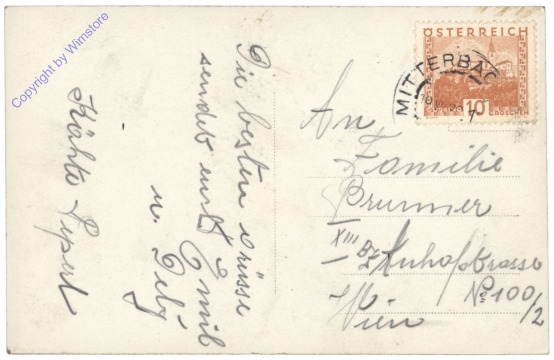 Copyright by Wimstore
ÖSTERREICH
10 GROSCHEN
MITTERBAC
Die besten Grüsse
sendet euch Emil
u.
Käthe
An
Familie
Brunner
XIII Bz
No 100/2
Wien